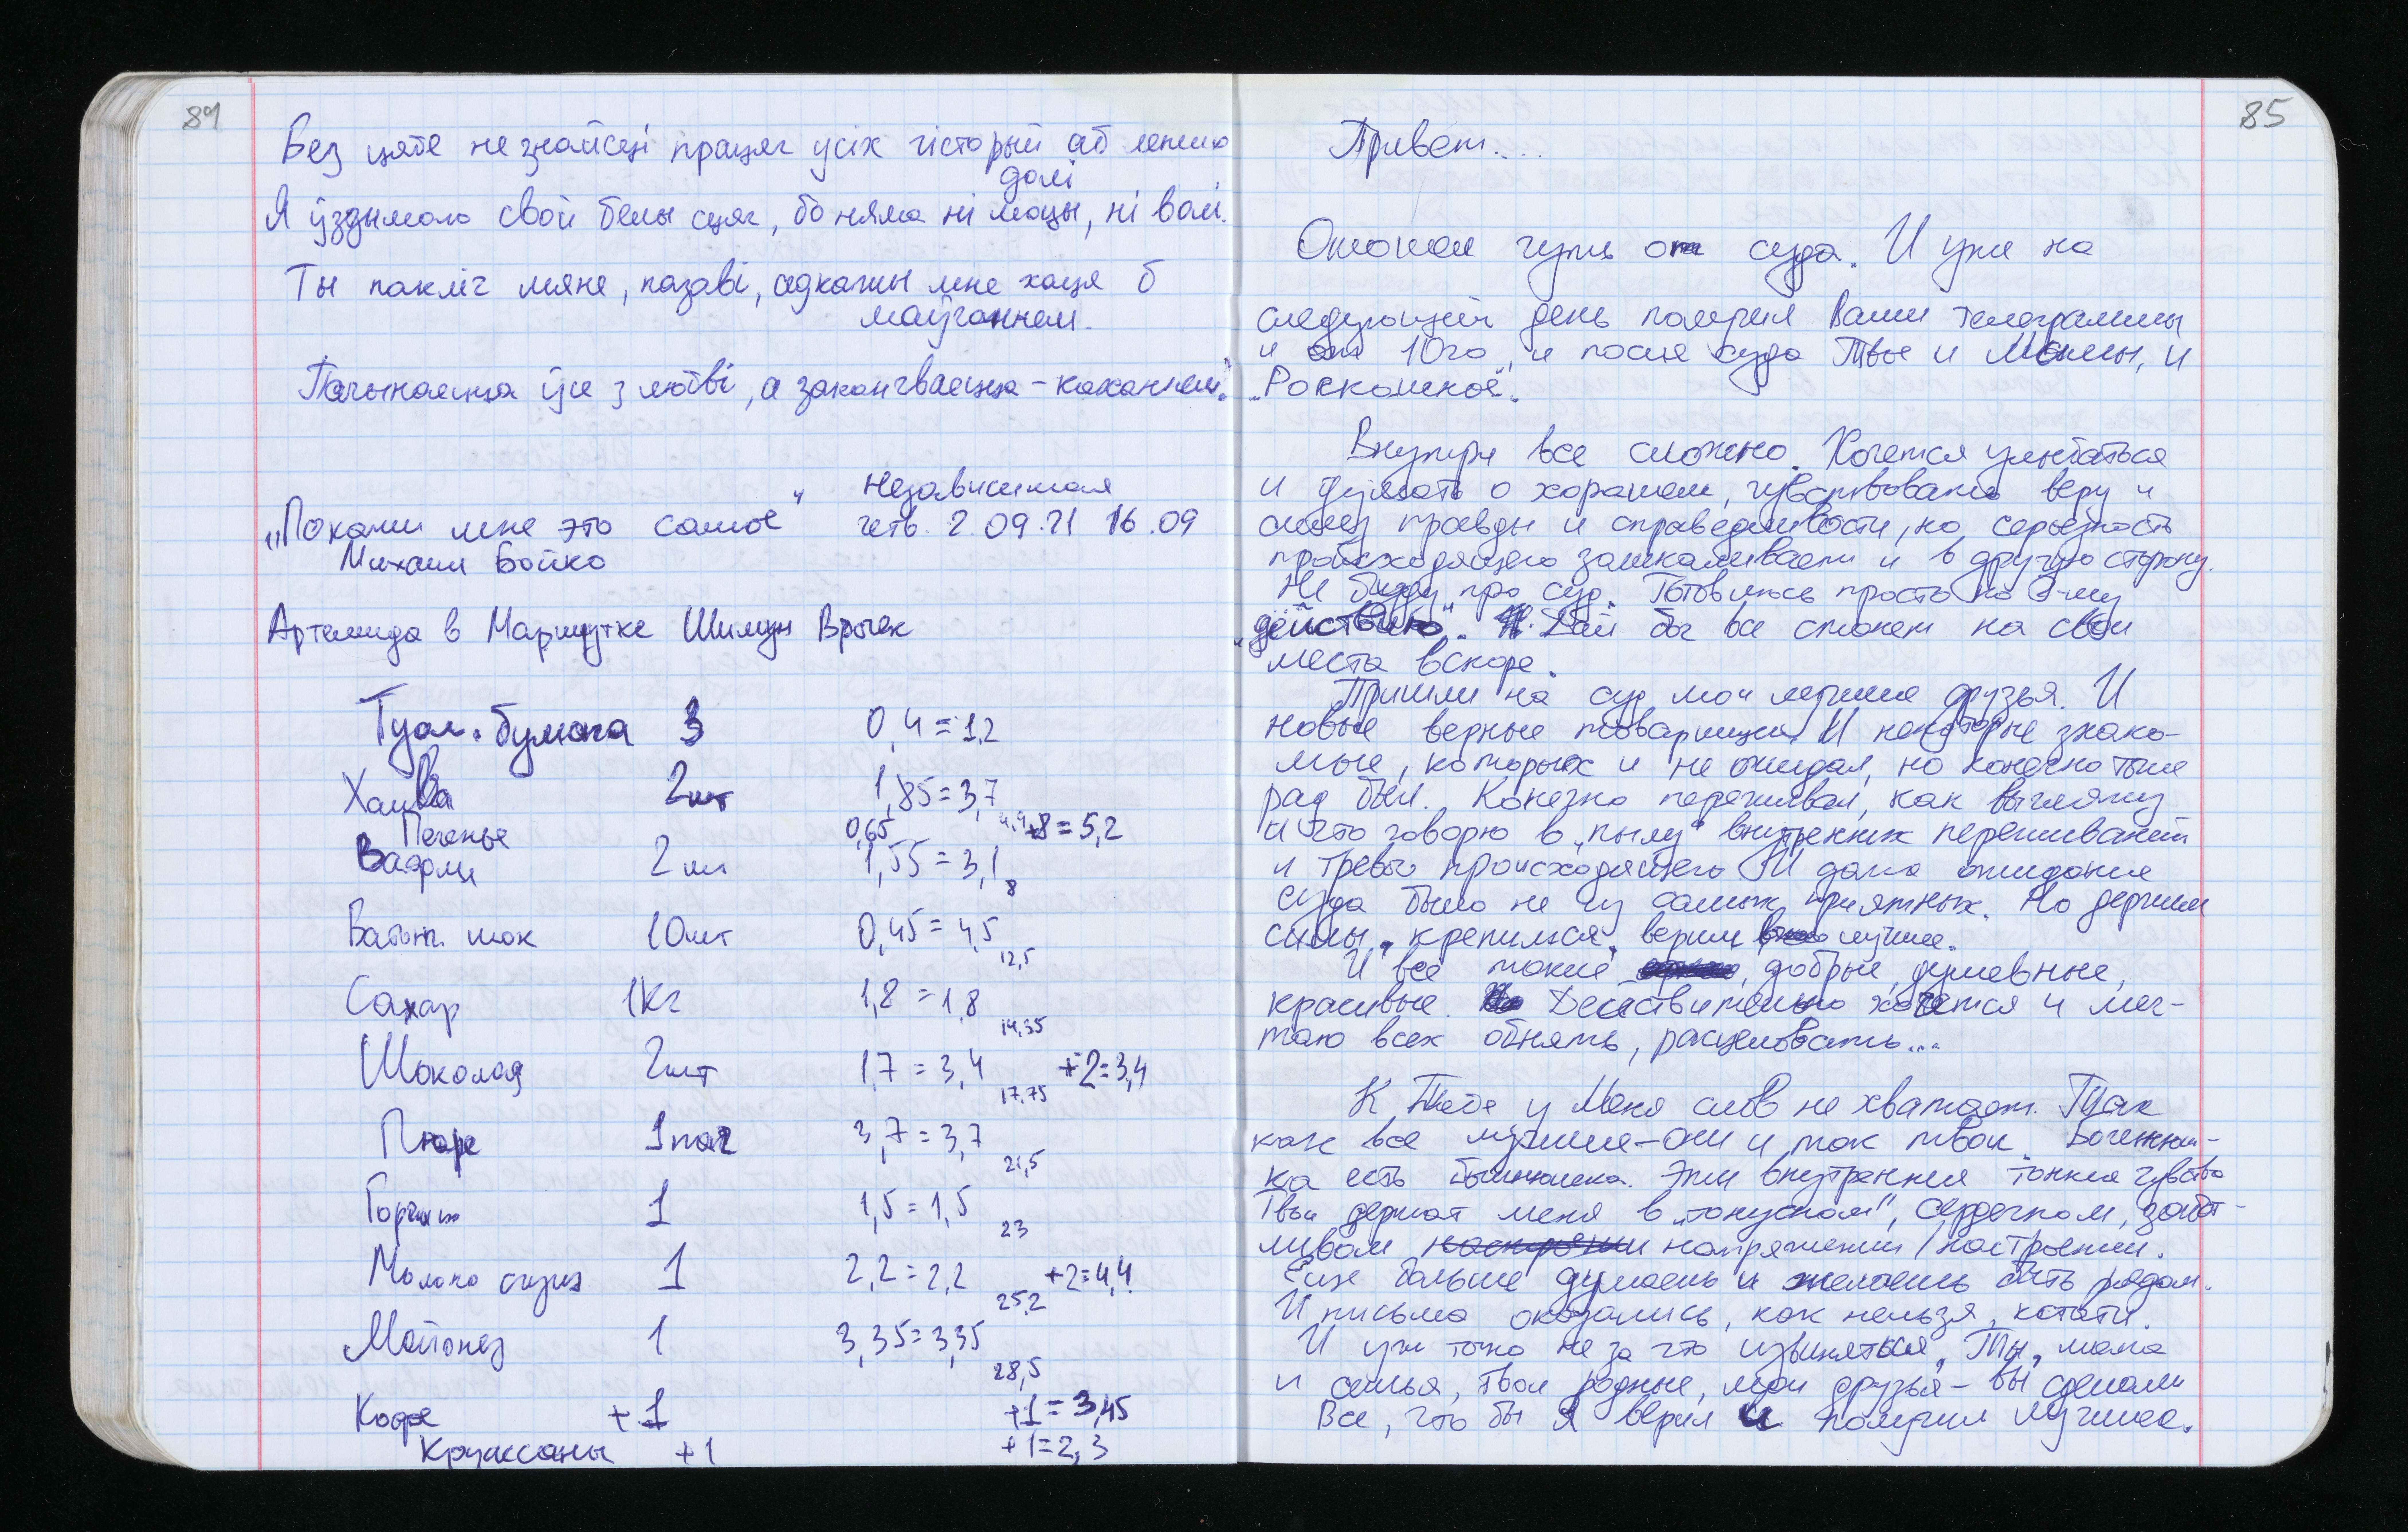 84
Без цябе не знайсці працяг усіх гісторый аб лепшай
долі
Я ўздымаю свой белы сцяг, бо няма ні моцы, ні волі.
Ты пакліч мяне, пазаві, адкажы мне хаця б
маўчаннем.
Пачынаецца ўсё з любві, а заканчваецца - каханнем."
„Покажи мне это самое" Независимая
четв. 2.09.21 16.09
Михаил Бойко
Артемида в Маршрутке Шимун Врочек
Туал. бумага 3 0,4 = 1,2
Халва 2шт 1,85 = 3,7
Печенье 0,65 +8 = 5,2
Вафли 2шт 1,55 = 3,1
8
Батонч. шок 10шт 0,45 = 4,5
12,5
Сахар 1кг 1,8 = 1,8
14,35
Шоколад 2шт 1,7 = 3,4 +2=3,4
17,75
Пюре 1пач 3,7 = 3,7
21,5
Горчица 1 1,5 = 1,5
23
Молоко сгущ 1 2,2 = 2,2 +2=4,4
25,2
Майонез 1 3,35 = 3,35
28,5
Кофе +1 +1 = 3,45
Круассаны +1 +1=2,3
85
Привет....
Отошел чуть от суда. И уже на
следующий день получил Ваши телеграммы
и от 10го, и после суда Твое и Мамы, и
„Роскошное".
Внутри все сложно. Хочется улыбаться
и думать о хорошем, чувствовать веру и
силу правды и справедливости, но серьезность
происходящего зашкаливает и в другую сторону.
Не буду про суд. Готовлюсь просто ко 2-му
„действию". Дай бог все станет на свои
места вскоре.
Пришли на суд мои лучшие друзья. И
новые верные товарищи. И некоторые знако-
мые, которых и не ожидал, но конечно тоже
рад был. Конечно переживал, как выгляжу
и что говорю в „пылу" внутренних переживаний
и тревог происходящего. И даже ожидание
суда было не из самых приятных. Но держим
силы, крепимся, верим в лучшее.
И все такие добрые, душевные,
красивые. Действительно хочется и меч-
таю всех обнять, расцеловать...
К Тебе у Меня слов не хватает. Так
как все лучшие - они и так твои.
ка есть Эти внутренние тонкие чувства
Твои держат меня в „тонусном", сердечном, забот-
ливом настроении напряжении/настроении.
Еще больше думаешь и желаешь быть рядом.
И письма оказались, как нельзя, кстати.
И уж точно не за что извиняться. Ты, мама
и семья, твои родные, мои друзья - вы сделали
Все, что бы Я верил и получил лучшее.